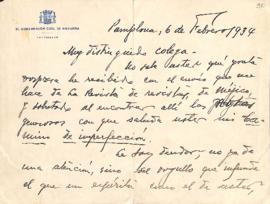 EL GOBERNADOR CIVIL DE NAVARRA
Pamplona, 6 de Febrero/1934
Muy distinguido colega:
No sabe usted qué grata
sorpresa he recibido con el envío que me
hace de La Revista de revistas, de México,
y sobretodo al encontrar allí las
generosas con que saluda usted mi Ca-
mino de imperfección.
Le soy deudor, no ya de
una atención, sino del orgullo que infunde
el que un espíritu como el de usted,